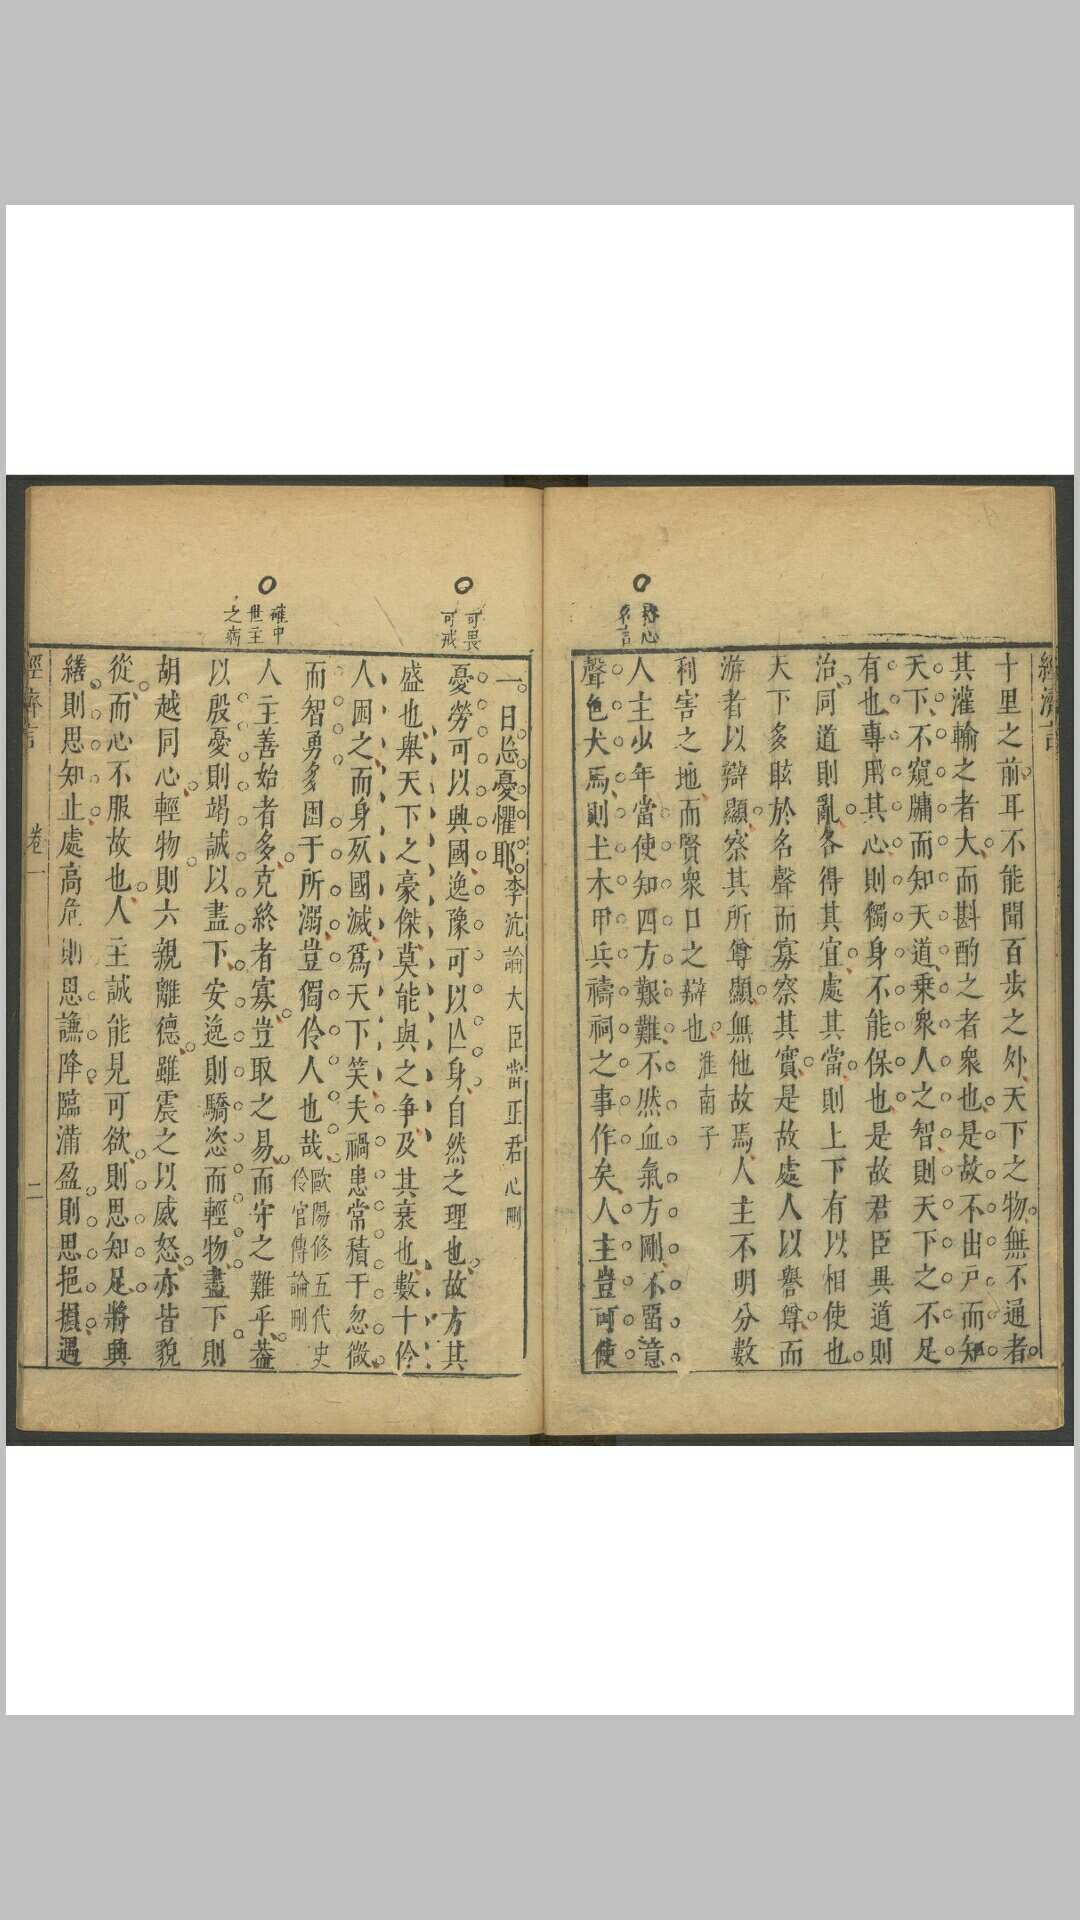 十里之前耳不能聞百步之外天下之物無不通者
其灌輸之者大而斟酌之者衆也是故不出戸而知
天下不窺牖而知天道乘衆人之智則天下之不足
有也專用其心則獨身不能保也是故君臣異道則
治同道則亂各得其宜處其當則上下有以相使也
天下多眩於名聲而寡察其實是故處人以譽尊而
游者以辯顯察其所尊顯無他故焉人主不明分數
利害之地而賢衆口之辯也淮南子
人主少年當使知四方艱難不然血氣方剛不畱意
聲色犬馬則土木甲兵禱祠之事作矣人主豈可使
名言
一日忘憂懼耶李沆論大臣當正君心刪
憂勞可以興國逸豫可以亡身自然之理也故方其
盛也舉天下之豪傑莫能與之争及其衰也數十伶
人困之而身死國滅爲天下笑夫禍患常積于忽微
而智勇多困于所溺豈獨伶人也哉歐陽修五代史
伶官傳論刪
人主善始者多克終者寡豈取之易而守之難乎葢
以殷憂則竭誠以盡下安逸則驕恣而輕物盡下則
胡越同心輕物則六親離德雖震之以威怒亦皆貌
從而心不服故也人主誠能見可欲則思知足將興
繕則思知止處高危則思謙降臨滿盈則思挹損遇
可畏
可戒
確中
世主
之病
經濟言
卷一
二